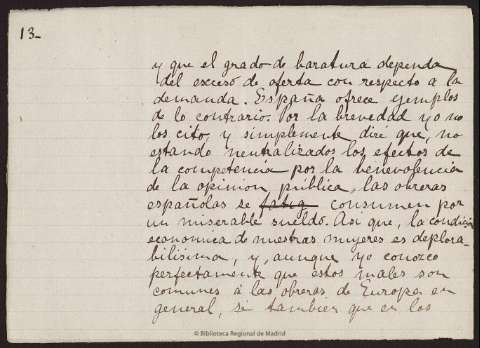 13_
y que el grado de baratura dependa
del exceso de oferta con respecto a la
demanda. España ofrece ejemplos
de lo contrario. Por la brevedad yo no
los cito, y simplemente diré que, no
estando neutralizados los efectos de
la competencia por la benevolencia
de la opinión pública, las obreras
españolas se fatig consumen por
un miserable sueldo. Asi que, la condición
economica de nuestras mujeres es deplora-
bilisima, y, aunque yo conozco
perfectamente que estos males son
comunes á las obreras de Europa en
general, si tambien que en los
© Biblioteca Regional de Madrid